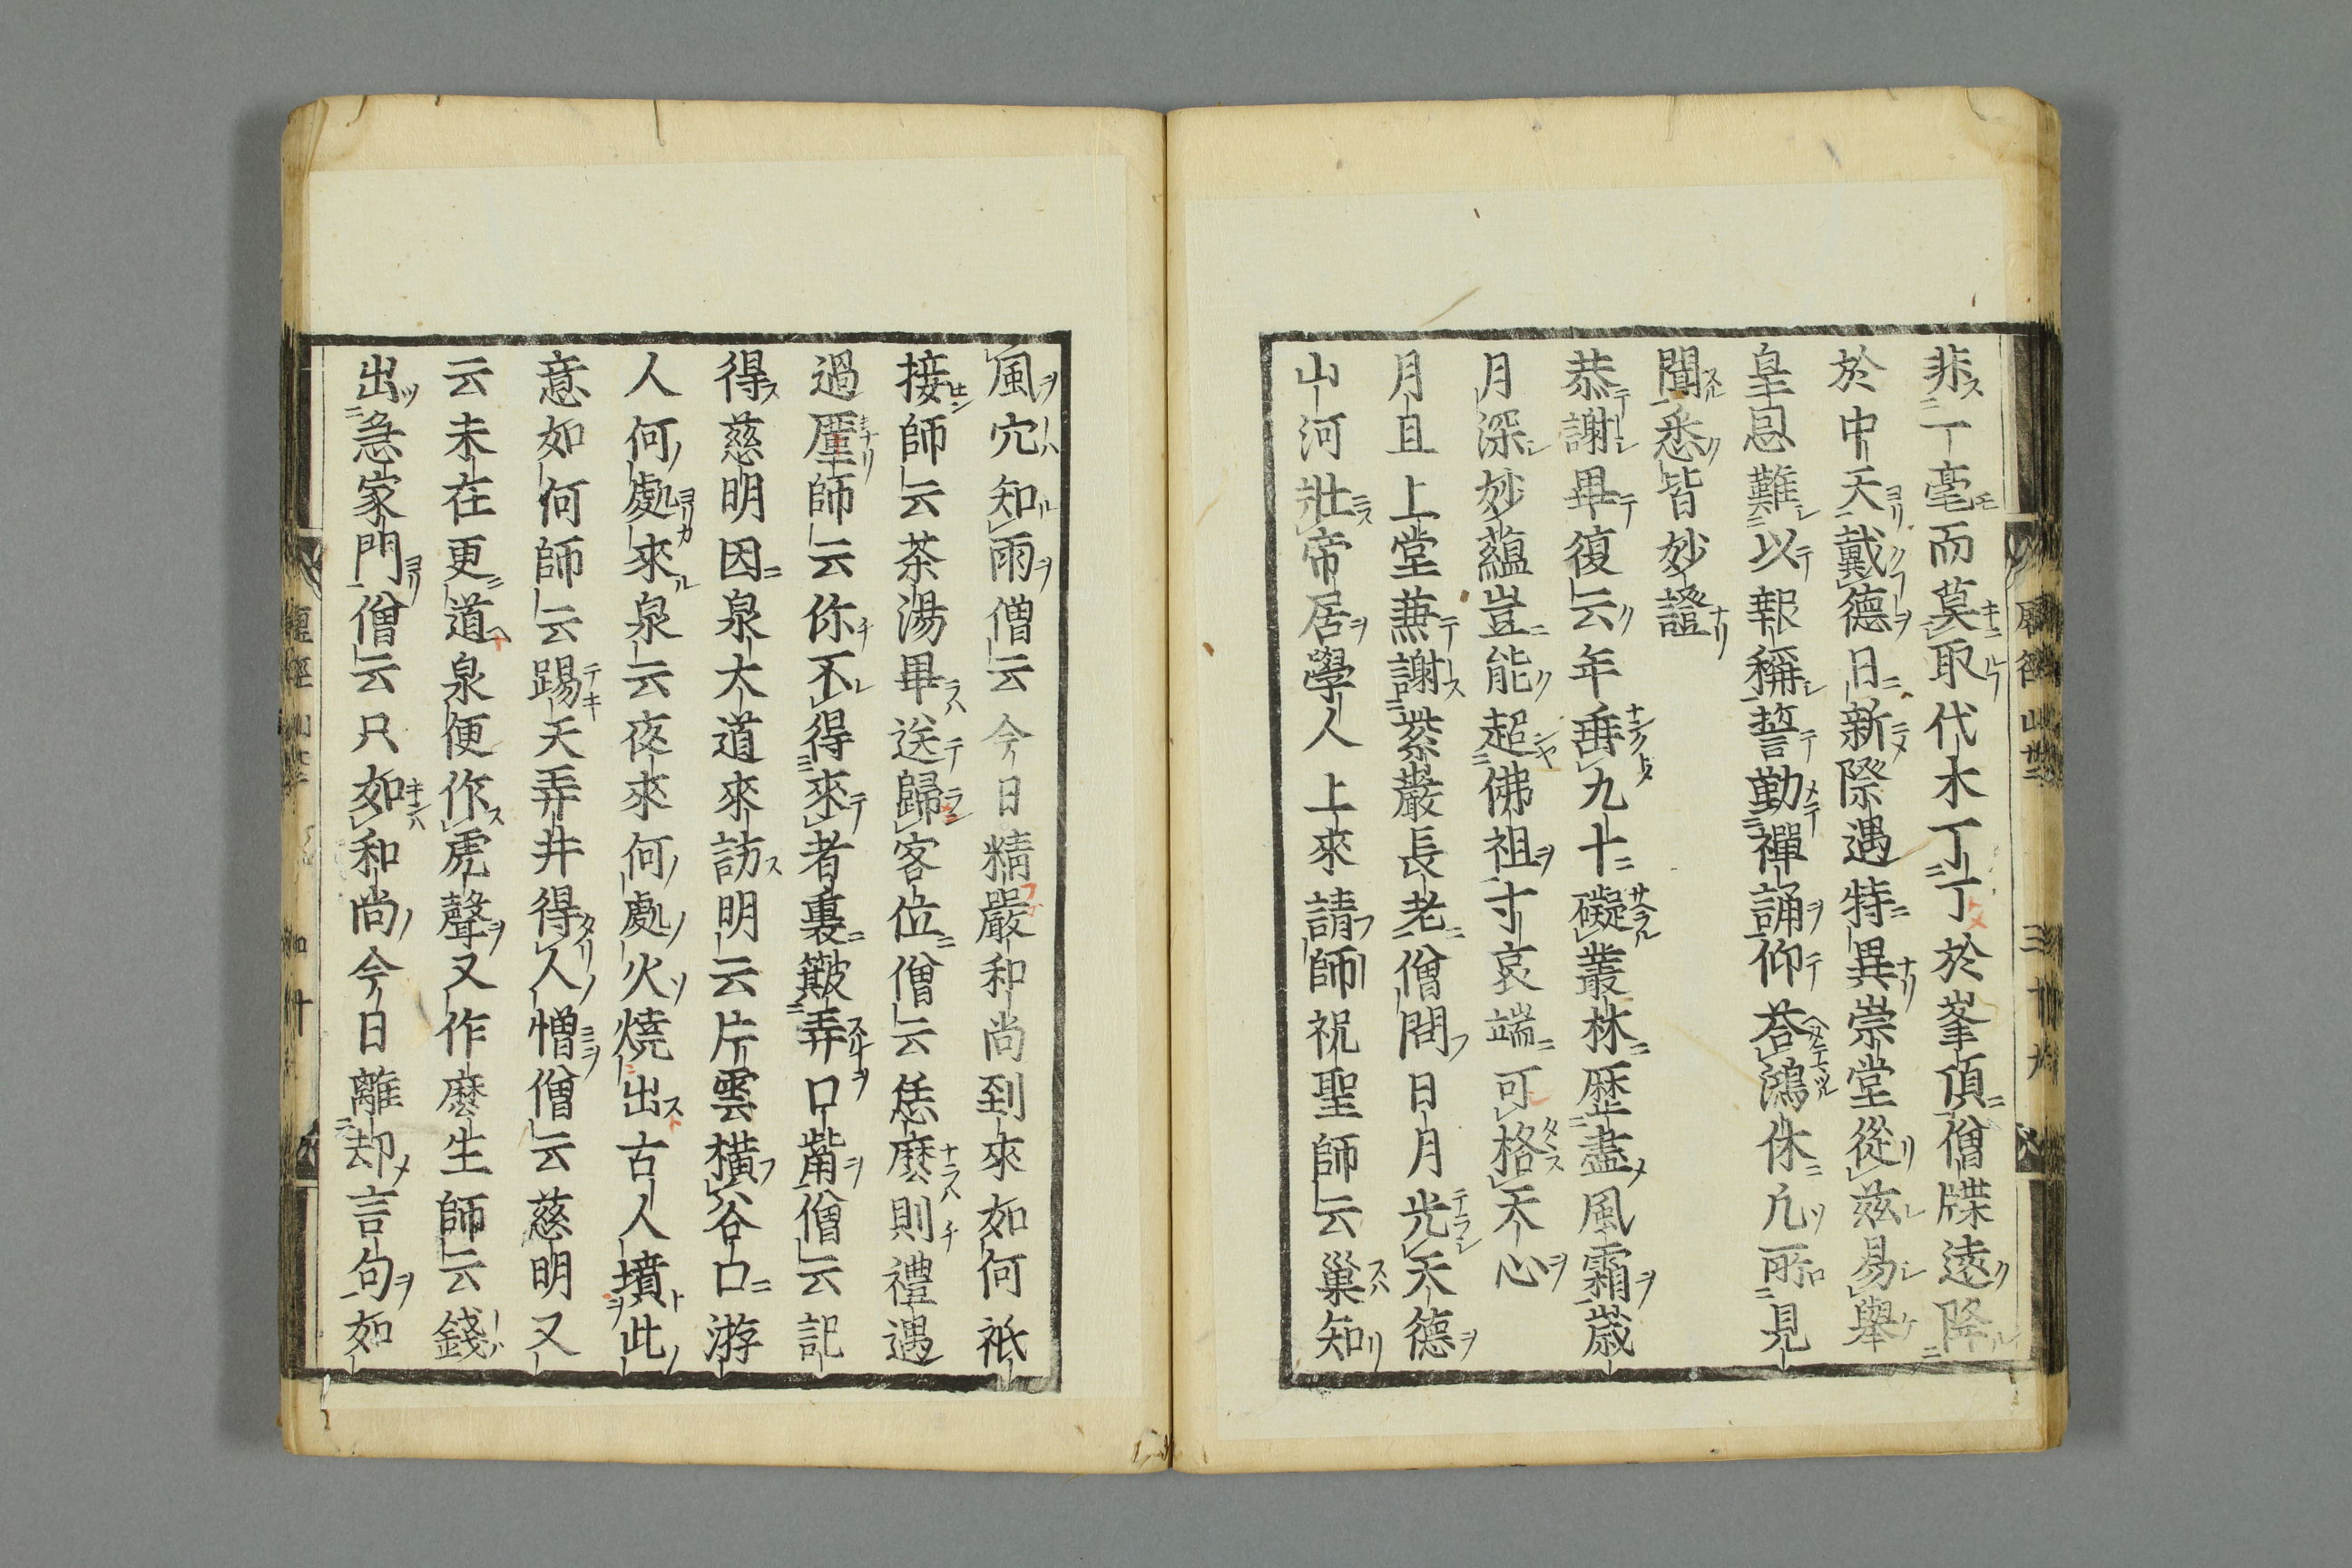 非一毫而莫取代木丁丁於峯頂僧牒遠降
於中天戴德日新際遇特異崇堂從茲易舉
皇恩難以報稱誓勤禪誦仰荅鴻休凢所見
聞悉皆妙證
恭謝畢復云年垂九十礙叢林歷盡風霜歳
月深妙蘊豈能超佛祖寸哀端可格天心
月旦上堂兼謝紫巖長老僧問日月光天德
山河壯帝居學人上來請師祝聖師云巢知
風穴知雨僧云今日精嚴和尚到來如何祇
接師云茶湯畢送歸客位僧云恁麽則禮遇
過厘師云你不得來者裏簸弄口觜僧云記
得慈明因泉大道來訪明云片雲橫谷口游
人何處來泉云夜來何處火燒出古人墳此
意如何師云踢天弄井得人憎僧云慈明又
云未在更道泉便作虎聲又作麽生師云錢
出急家門僧云只如和尚今日離却言句如